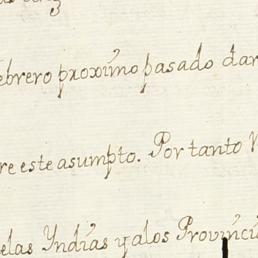 ebrero proxîmo pasado dar
re este asumpto. Por tanto
elas Yndias y alos Provinci